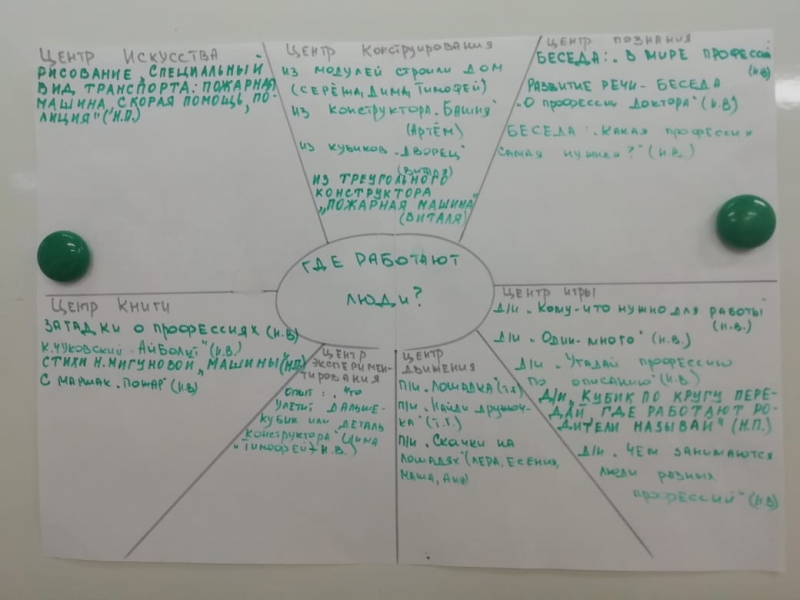 Центр Искусства
Рисование „Специальный
вид транспорта: пожарная
машина, скорая помощь, по-
лиция" (Н.П.)
Центр Конструирования
из модулей строили дом
(Серёжа, Дима, Тимофей)
из конструктора „Башня"
(Артём)
из кубиков „Дворец"
(Виталя)
из треугольного
конструктора
„Пожарная машина"
(Виталя)
Центр познания
Беседа: „В мире профессий
(Н.В)
Развитие речи - беседа
„О профессии доктора" (Н.В)
Беседа: „Какая профессия
самая нужная?" (Н.В.)
Где работают
люди?
Центр Книги
Загадки о профессиях (Н.В)
К. Чуковский „Айболит" (Н.В)
Стихи Н. Мигуновой „Машины" (Н.П)
С Маршак „Пожар" (Н.В)
Центр
эксперимен-
тирования
опыт: „Что
улетит дальше-
кубик или деталь
конструктора"
Тимофей) Н.В.)
Центр
Движения
П/и „Лошадка" (Т.Т)
П/и „Найди дружоч-
ка" (Т.Т.)
П/и „Скачки на
лошадях" (Лера, Есения,
Маша, Аня)
Центр игры
Д/и „Кому-что нужно для работы"
(Н.В.)
Д/и „Один-много" (Н.В.)
Д/и „Угадай профессию
по описанию" (Н.В)
Д/и „Кубик по кругу пере-
дай, где работают ро-
дители называй" (Н.П.)
Д/и „Чем занимаются
люди разных
профессий" (Н.В)